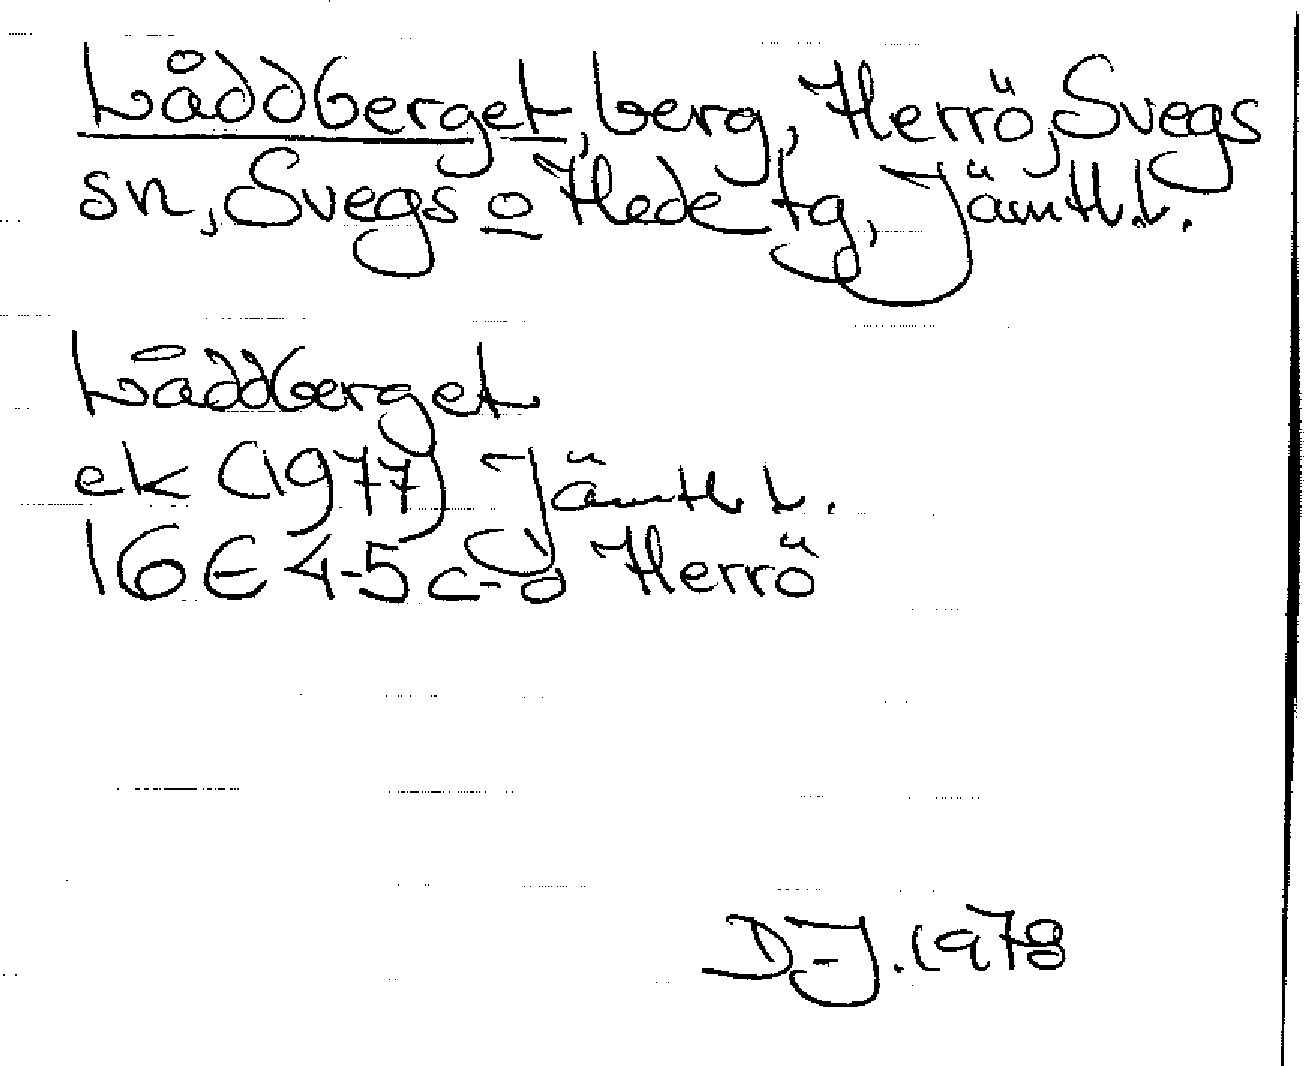 Låddberget, berg, Herrö, Svegs
sn, Svegs o Hede tg, Jämtl.l.
Låddberget
ek (1977) Jämtl. l.
16E 4-5 c-d Herrö
D-J. 1978